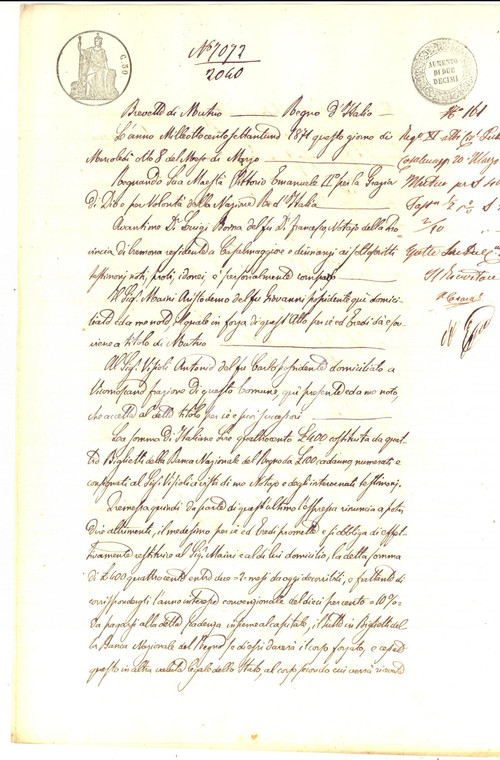 C. 50
N.° 7072
2060
AUMENTO
DI DUE
DECIMI
Brevetto di Mutuo — Regno d'Italia
N.° 161
L'anno Milleottocento settantuno 1871 questo giorno di
Mercoledì otto 8 del Mese di Marzo
Regnando Sua Maestà Vittorio Emanuele II° per la Grazia
di Dio e per Volontà della Nazione Re d'Italia
Avanti me Dr. Luigi Borsa del fu Dr. Francesco, Notajo della Pro
vincia di Cremona residente a Casalmaggiore e dinnanzi ai sottoscritti
testimonj noti, probi, idonei è personalmente comparso
Il Sig. Maini Aristodemo del fu Giovanni possidente qui domici
liato e da me noto, il quale in forza di quest'Atto per sè ed Eredi dà e
a titolo di Mutuo
Al Sig. Vispoli Antonio del fu Carlo possidente domiciliato a
Vicomoscano frazione di questo Comune, qui presente e da me noto,
che accetta a detto titolo per sè e suoi successori
La somma di Italiane Lire quattrocento £ 400 costituita da quat
tro Biglietti della Banca Nazionale del Regno da £ 100 cadauno, numerati e
consegnati al Sig. Vispoli a vista di me Notajo e degli intervenuti testimonj.
Premessa quindi da parte di quest'ultimo l'espressa rinuncia a poter
dire altrimenti, il medesimo per sè ed Eredi promette e si obbliga di effet
tivamente restituire al Sig. Maini e al di lui domicilio, la detta somma
di £ 400 quattrocento entro due = 2 mesi da oggi decorribili, e frattanto di
corrispondergli l'annuo interesse convenzionale del dieci per cento = 10%
da pagarsi alla detta scadenza insieme al capitale, il tutto in Biglietti del
la Banca Nazionale del Regno se di essi durerà il corso forzato, e cessato
questo in altra valuta legale dello Stato, al corso secondo cui verrà
Casalmagg. 20 Marzo
Mutuo per £
Il Ricevitore